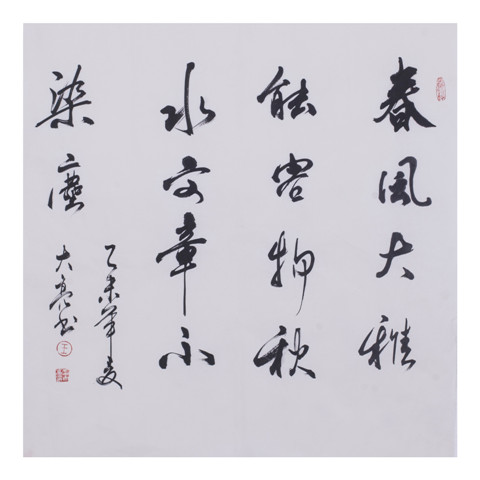 春風大雅
能容物秋
水文章不
染塵
乙未年夏
大亮书